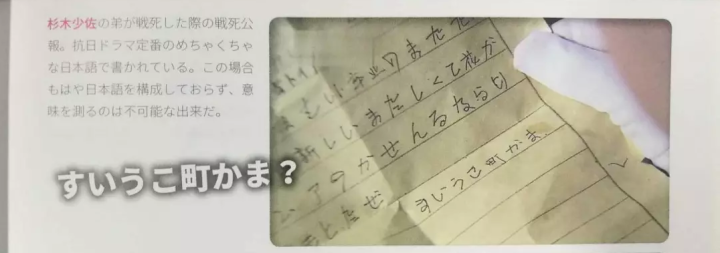 杉木少佐の弟が戦死した際の戦死公
報。抗日ドラマ定番のめちゃくちゃ
な日本語で書かれている。この場合
もはや日本語を構成しておらず、意
味を測るのは不可能な出来だ。
すいうこ町かま？
新しいまたしくて花が
アタかせんるならり
すいうこ町かま